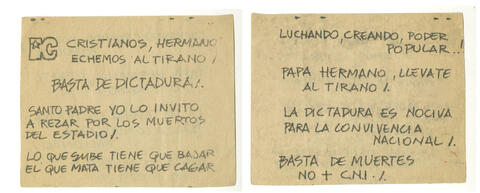 PC CRISTIANOS, HERMANO
ECHEMOS AL TIRANO!
BASTA DE DICTADURA!.
SANTO PADRE YO LO INVITO
A REZAR POR LOS MUERTOS
DEL ESTADIO!.
LO QUE SUBE TIENE QUE BAJAR
EL QUE MATA TIENE QUE CAGAR
LUCHANDO, CREANDO, PODER
POPULAR..!
PAPA HERMANO, LLEVATE
AL TIRANO!.
LA DICTADURA ES NOCIVA
PARA LA CONVIVENCIA
NACIONAL!.
BASTA DE MUERTES
NO + C.N.I.!.